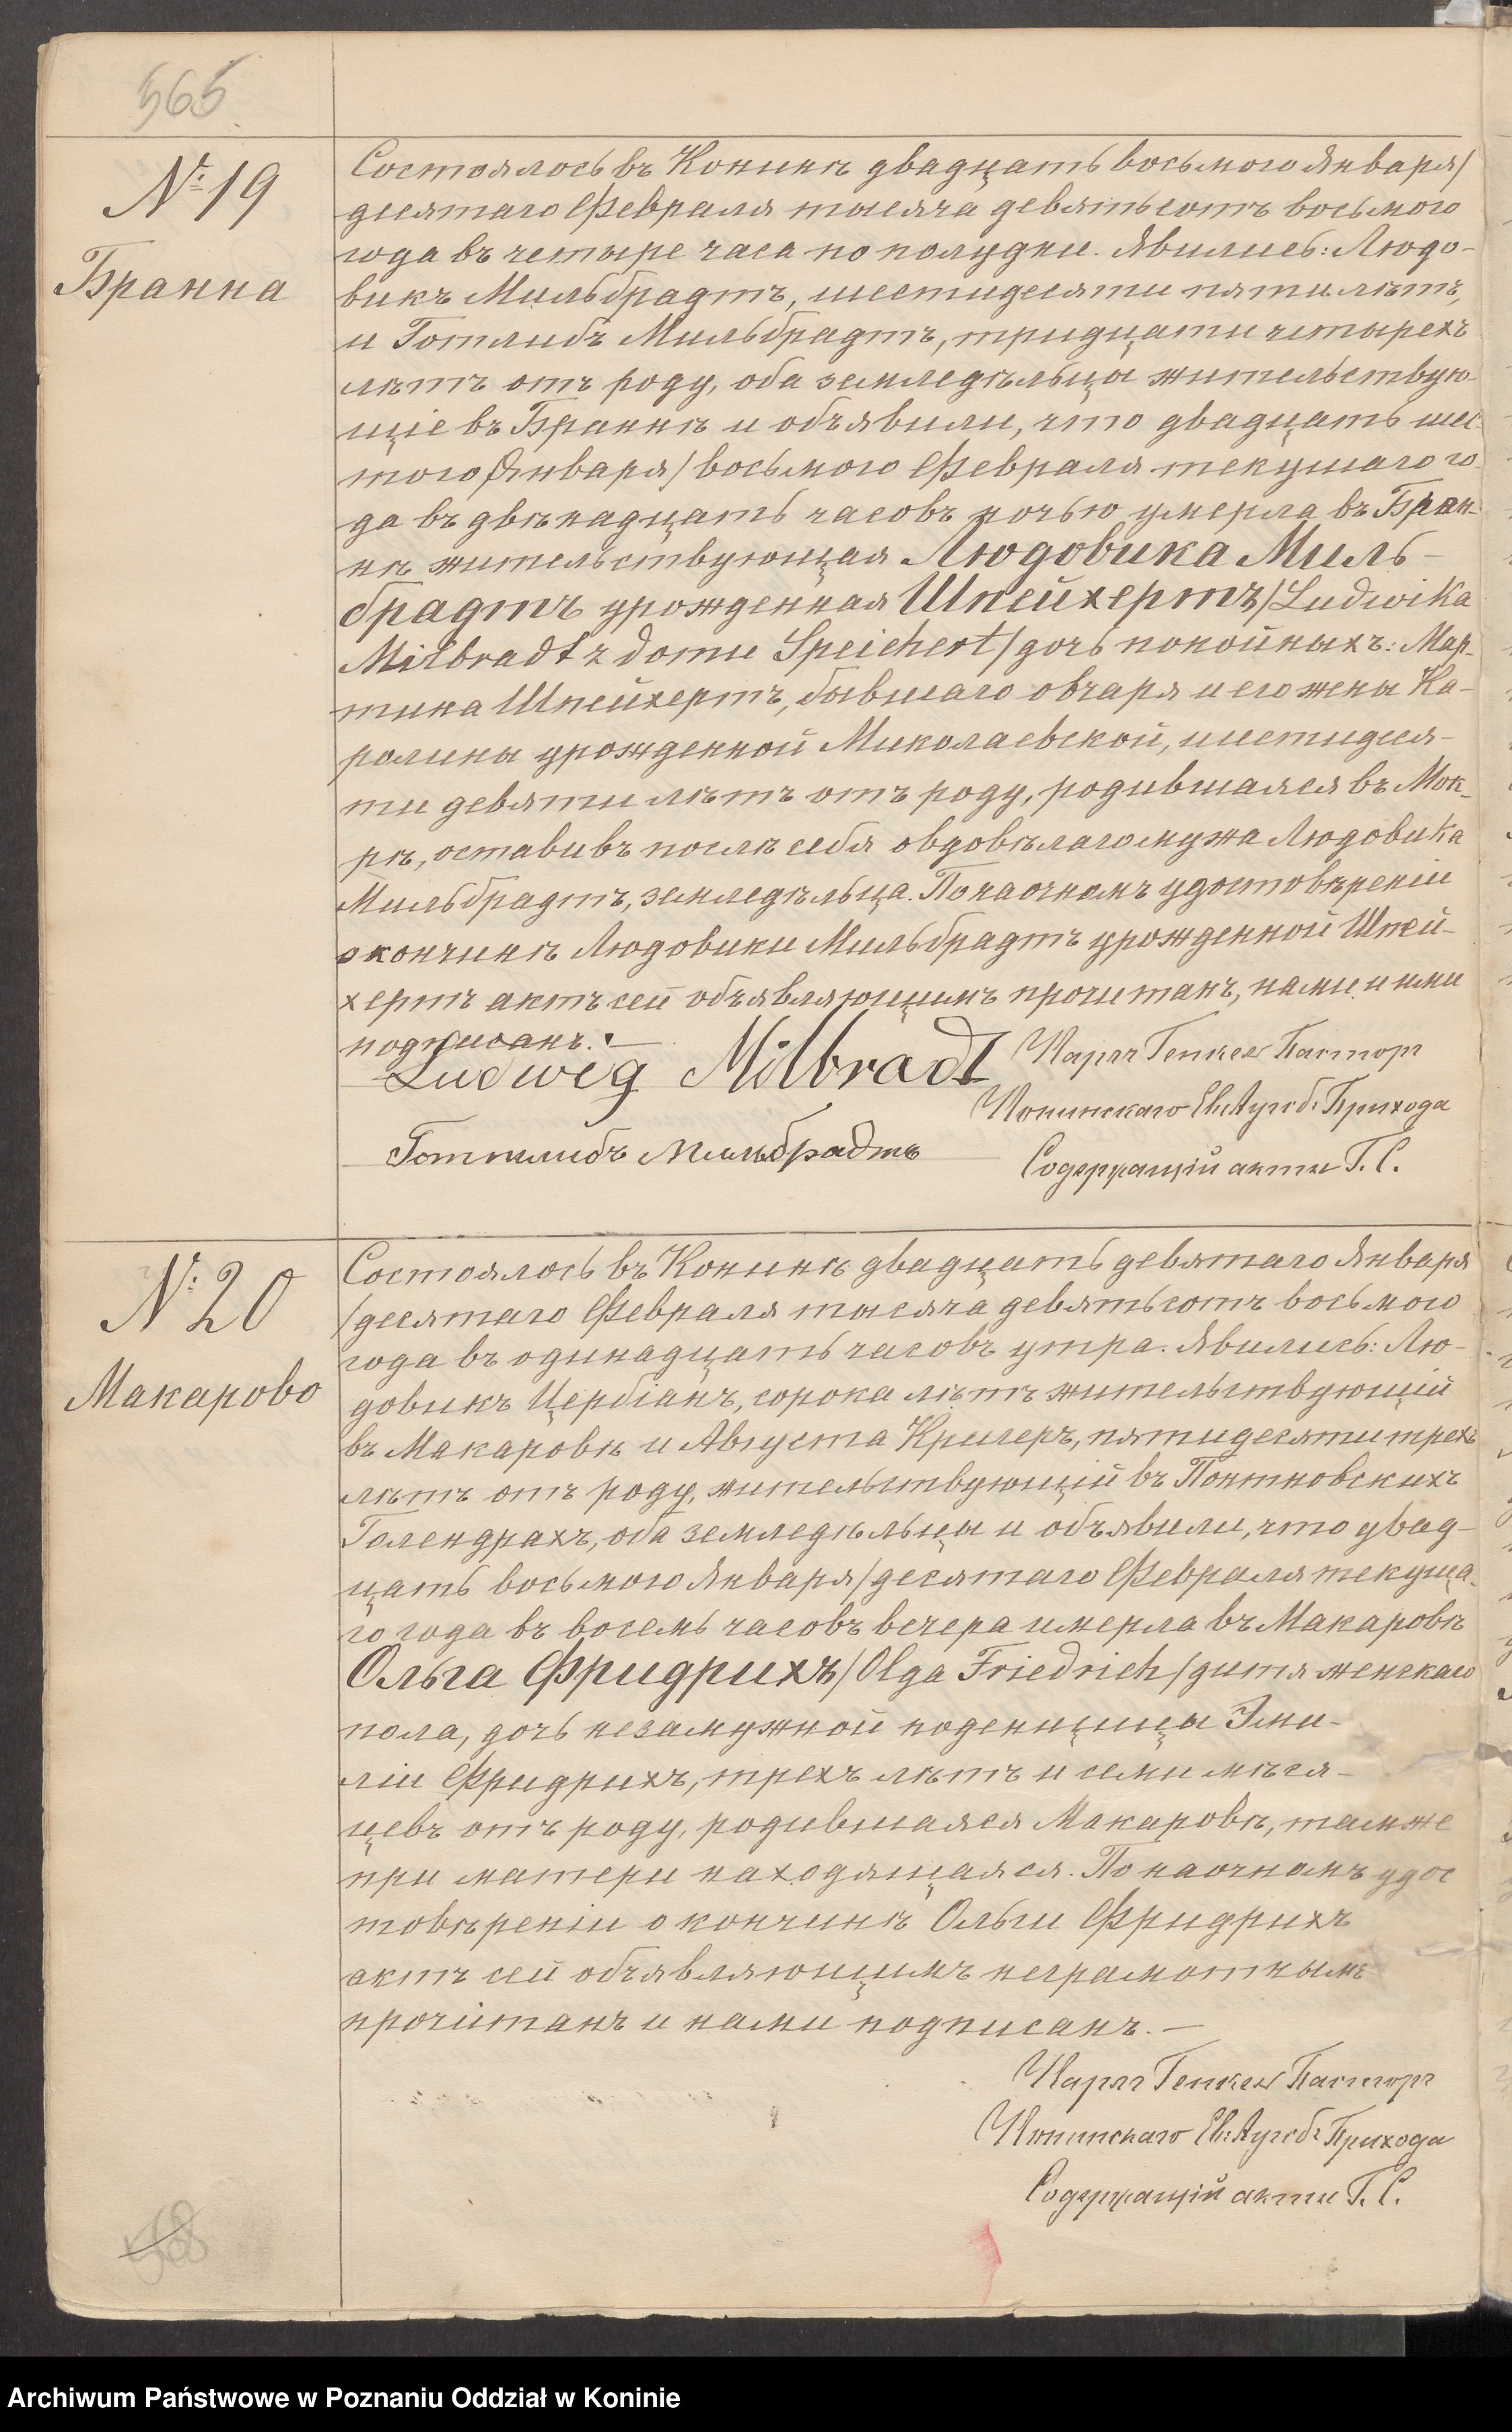 565
№ 19
Бранна
Состоялось въ Конинѣ двадцать восьмого Января/
десятаго Февраля тысяча девятьсотъ восьмого
года въ четыре часа по полудни. Явились: Людо-
викъ Мильбрадтъ, шестидесяти пяти лѣтъ,
и Готлибъ Мильбрадтъ, тридцати четырехъ
лѣтъ отъ роду, оба земледѣльцы жительствую-
щіе въ Браннѣ и объявили, что двадцать шес-
того Января/восьмого Февраля текушаго го-
да въ двѣнадцать часовъ ночью умерла въ Бран-
нѣ жительствующая Людовика Миль-
брадтъ урожденная Шпейхертъ/Ludwika
Milbradt z domu Speichert/дочь покойныхъ: Мар-
тина Шпейхертъ, бывшаго овчаря и его жены Ка-
ролины урожденной Миколаевской, шестидеся-
ти девяти лѣтъ отъ роду, родившаяся въ Мок-
рѣ, оставивъ послѣ себя овдовѣлаго мужа Людовика
Мильбрадтъ, земледѣльца. По наочномъ удостовѣреніи
о кончинѣ Людовики Мильбрадтъ урожденной Шпей-
хертъ актъ сей объявляющимъ прочитанъ, нами и ими
подписанъ. —
Ludweg Milbradt
Готтлибъ Мильбрадтъ
Карлъ Генкель Пасторъ
Конинскаго Ев: Аугсб: Прихода
Содержащій акты Г. С.
№ 20
Макарово
Состоялось въ Конинѣ двадцать девятаго Января
/десятаго Февраля тысяча девятьсотъ восьмого
года въ одинадцать часовъ утра. Явились: Лю-
довикъ Цербіанъ, сорока лѣтъ жительствующій
въ Макаровѣ и Августа Кригеръ, пятидесяти трехъ
лѣтъ отъ роду, жительствующій въ Понтновскихъ
Голендрахъ, оба земледѣльцы и объявили, что двад-
цать восьмого Января/десятаго Февраля текуща-
го года въ восемь часовъ вечера умерла въ Макаровѣ
Ольга Фридрихъ/Olga Friedrich/дитя женскаго
пола, дочь незамужной поденщицы Эми-
ліи Фридрихъ, трехъ лѣтъ и семи мѣся-
цевъ отъ роду, родившаяся Макаровѣ, тамже
при матери находящаяся. По наочномъ удос
товѣреніи о кончинѣ Ольги Фридрихъ
актъ сей объявляющимъ неграмотнымъ
прочитанъ и нами подписанъ. —
Карлъ Генкель Пасторъ
Конинскаго Ев: Аугсб: Прихода
Содержащій акты Г. С.
Archiwum Państwowe w Poznaniu Oddział w Koninie